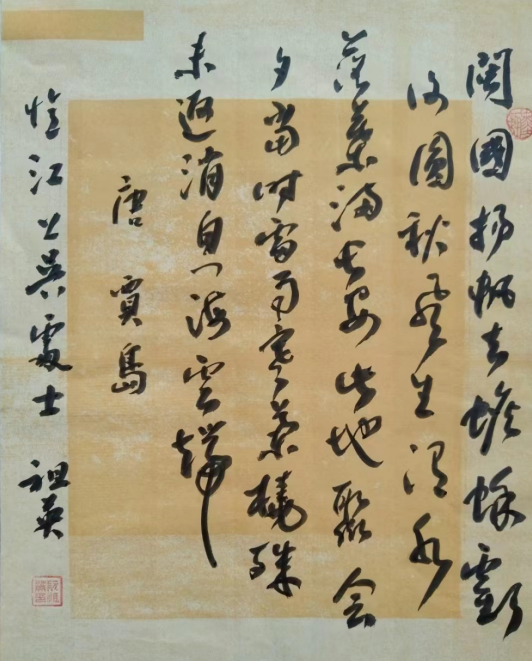 閩國揚帆去蟾蜍虧
復圓秋風生渭水
落葉滿長安此地聚会
夕當时雷雨寒蘭橈殊
未返消息海雲端
唐 賈島
憶江上吳處士 祖英